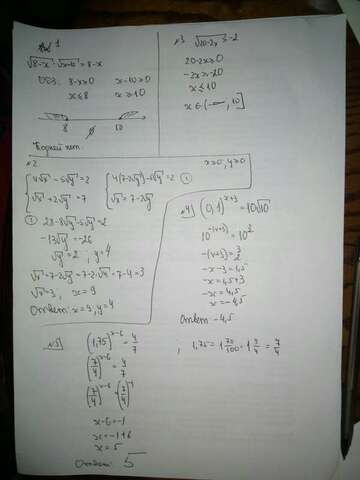 № 1
√8-x · √x-10 = 8-x
ОДЗ: 8-x≥0    x-10≥0
x≤8    x≥10
8    ∅    10
Корней нет.
№3  √20-2x
20-2x≥0
-2x≥-20
x≤10
x∈(-∞, 10]
№2    x≥0, y≥0
{4√x-5√y=2    {4(7-2√y)-5√y=2 ①
{√x+2√y=7    {√x=7-2√y
① 28-8√y-5√y=2
-13√y=-26
√y=2, y=4
√x=7-2√y=7-2·√4=7-4=3
√x=3, x=9
Ответ: x=9, y=4
№4) (0,1)^{x+3}=10√10
10^{-(x+3)}=10^{3/2}
-(x+3)=3/2
-x-3=1,5
-x=1,5+3
-x=4,5
x=-4,5
Ответ: -4,5
№5) (1,75)^{x-6}=4/7    , 1,75=1 75/100=1 3/4=7/4
(7/4)^{x-6}=4/7
(7/4)^{x-6}=(7/4)^{-1}
x-6=-1
x=-1+6
x=5
Ответ: 5